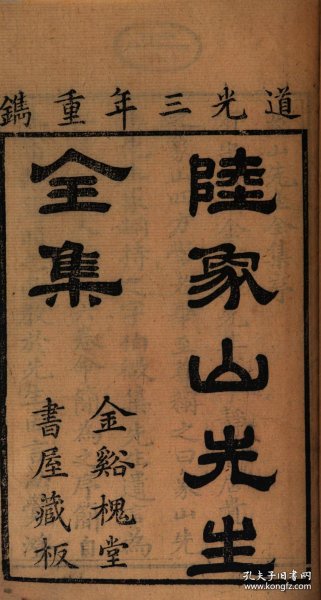 道光三年重鐫
陸象山先生
全集
金谿槐堂
書屋藏板
孔夫子旧书网
www.kongfz.com